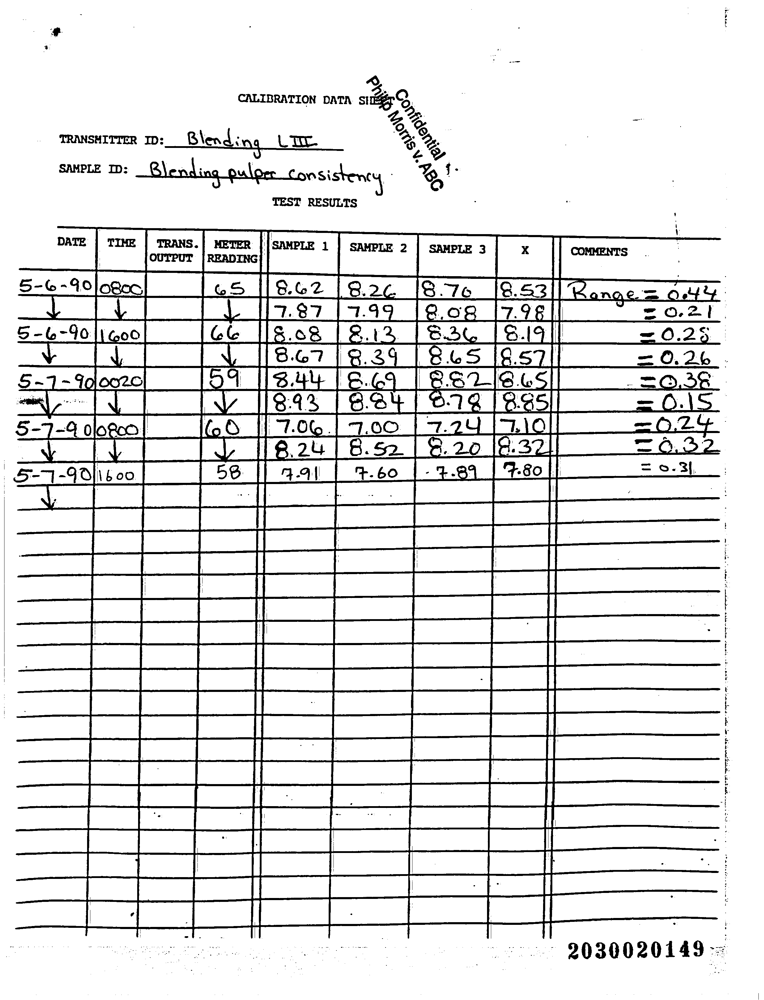 CALIBRATION DATA SHEET
Confidential
Philip Morris v. ABC
TRANSMITTER ID: Blending L III
SAMPLE ID: Blending pulper consistency
TEST RESULTS
DATE TIME TRANS. OUTPUT METER READING SAMPLE 1 SAMPLE 2 SAMPLE 3 X COMMENTS
5-6-90 0800 65 8.62 8.26 8.70 8.53 Range = 0.44
↓ ↓ ↓ 7.87 7.99 8.08 7.98 = 0.21
5-6-90 1600 66 8.08 8.13 8.36 8.19 = 0.28
↓ ↓ ↓ 8.67 8.39 8.65 8.57 = 0.26
5-7-90 0020 59 8.44 8.69 8.82 8.65 = 0.38
↓ ↓ ↓ 8.93 8.84 8.78 8.85 = 0.15
5-7-90 0800 60 7.06 7.00 7.24 7.10 = 0.24
↓ ↓ ↓ 8.24 8.52 8.20 8.32 = 0.32
5-7-90 1600 58 7.91 7.60 7.89 7.80 = 0.31
↓
2030020149